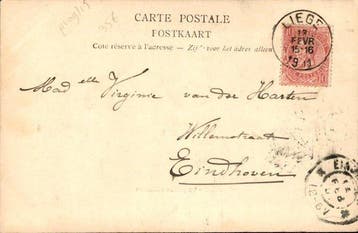 CARTE POSTALE
POSTKAART
Côté réservé à l'adresse — Zij' voor het adres alleen
LIEGE
12
FEVR
15-16
Mad elle Virginie van der Harten
Willemstraat
Eindhoven